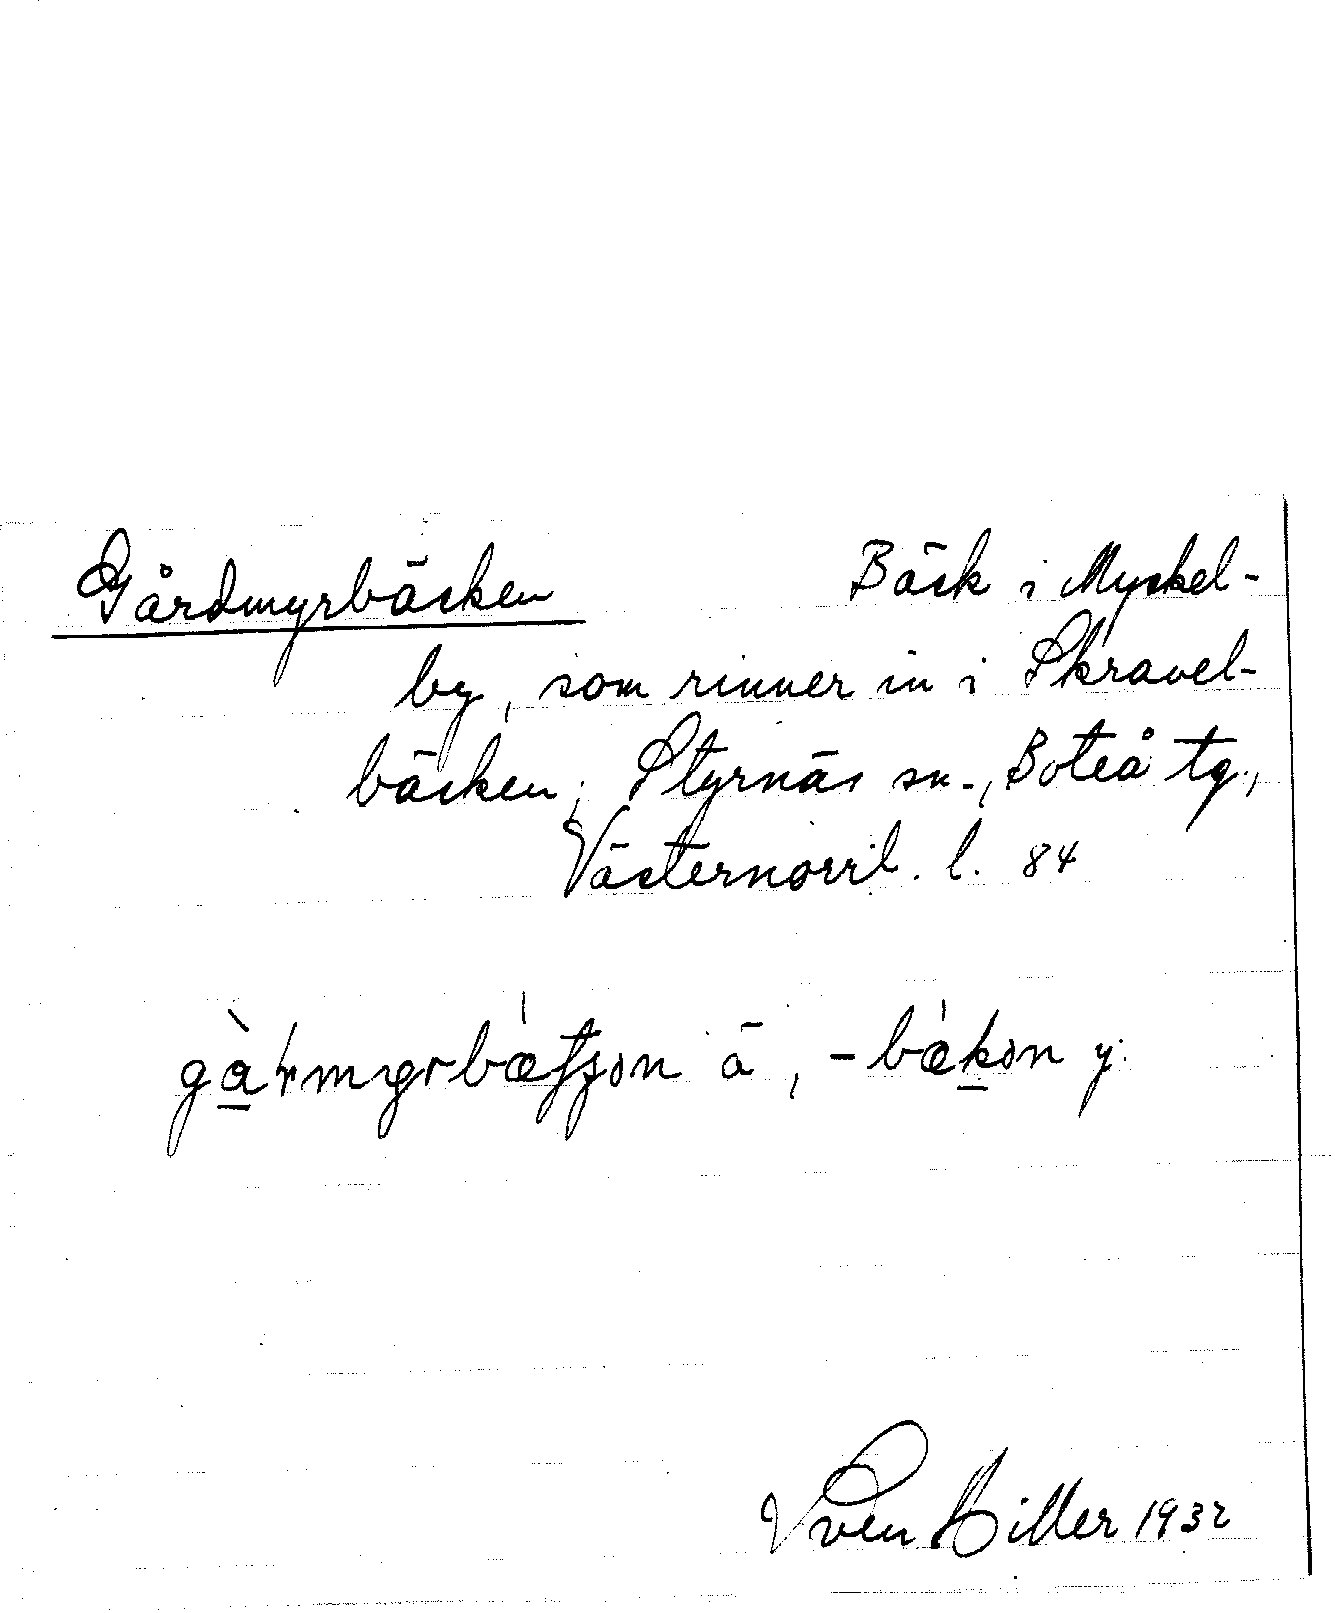 Gårdmyrbäcken Bäck i Myckel-
by, som rinner in i Skravel-
bäcken; Styrnäs sn., Boteå tg.,
Västernorrl. l. 84
ä, -bækən y.
Sven Hiller 1932